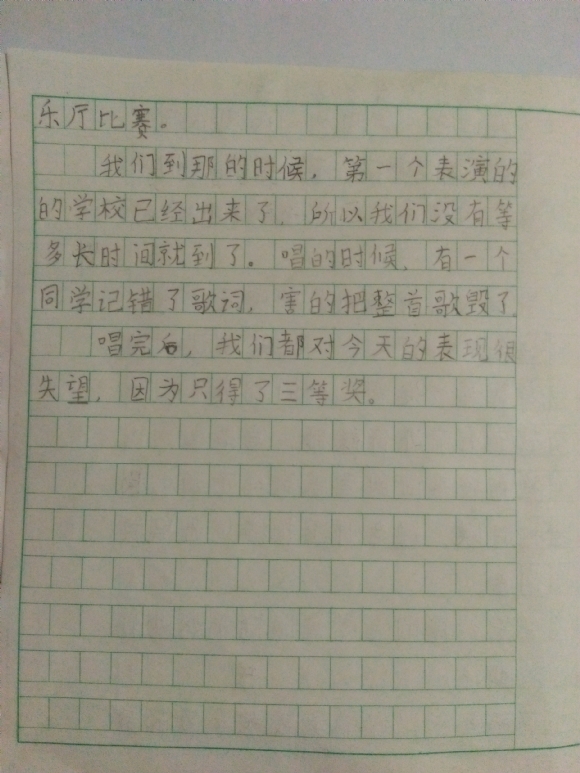 乐厅比赛。
我们到那的时候，第一个表演的
的学校已经出来了，所以我们没有等
多长时间就到了。唱的时候，有一个
同学记错了歌词，害的把整首歌毁了
唱完后，我们都对今天的表现很
失望，因为只得了三等奖。